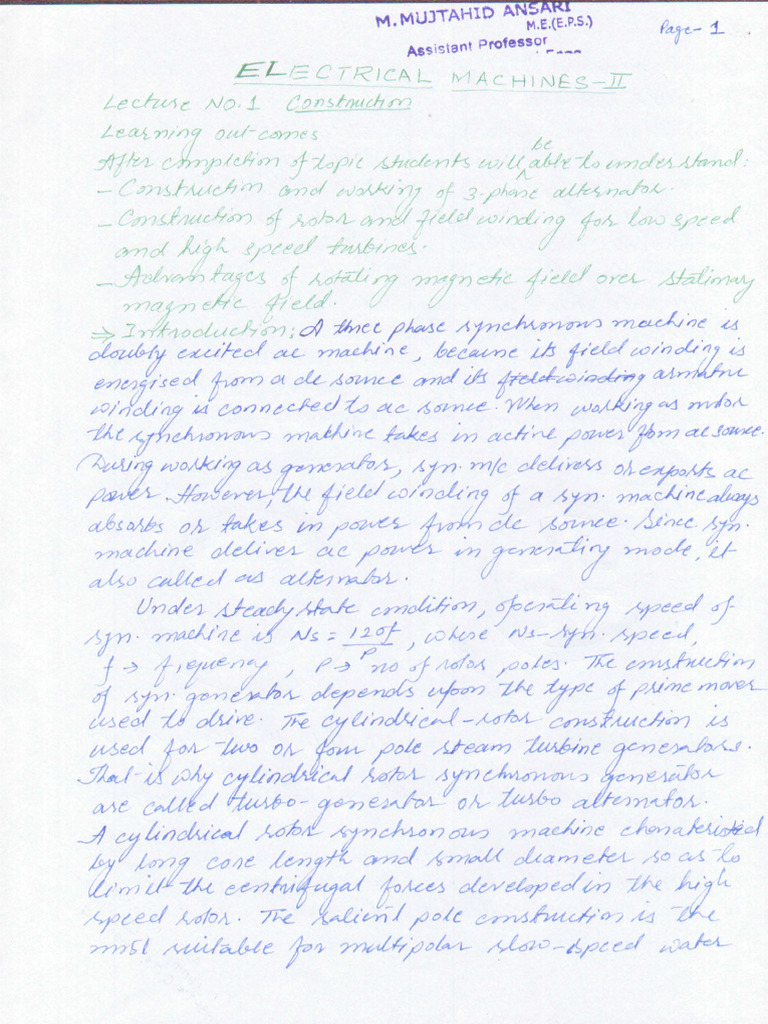 M. MUJTAHID ANSARI
M.E.(E.P.S.)
Page-1
Assistant Professor
ELECTRICAL MACHINES-II
Lecture No.1 Construction
Learning out-comes
After completion of topic students will be able to understand:
- Construction and working of 3-phase alternator.
- Construction of rotor and field winding for low speed
and high speed turbines.
- Advantages of rotating magnetic field over stationary
magnetic field.
⇒ Introduction: A three phase synchronous machine is
doubly excited ac machine, because its field winding is
energised from a dc source and its field winding armature
winding is connected to ac source. When working as motor
the synchronous machine takes in active power from ac source.
During working as generator, syn. m/c delivers or exports ac
power. However, the field winding of a syn. machine always
absorbs or takes in power from dc source. Since syn.
machine deliver ac power in generating mode, it
also called as alternator.
Under steady state condition, operating speed of
syn. machine is Ns = 120f/P, where Ns-syn. speed,
f → frequency, P → no of rotor poles. The construction
of syn. generator depends upon the type of prime mover
used to drive. The cylindrical-rotor construction is
used for two or four pole steam turbine generators.
That is why cylindrical rotor synchronous generator
are called turbo-generator or turbo alternator.
A cylindrical rotor synchronous machine
by long core length and small diameter so as to
limit the centrifugal forces developed in the high
speed rotor. The salient pole construction is the
most suitable for multipolar slow-speed water